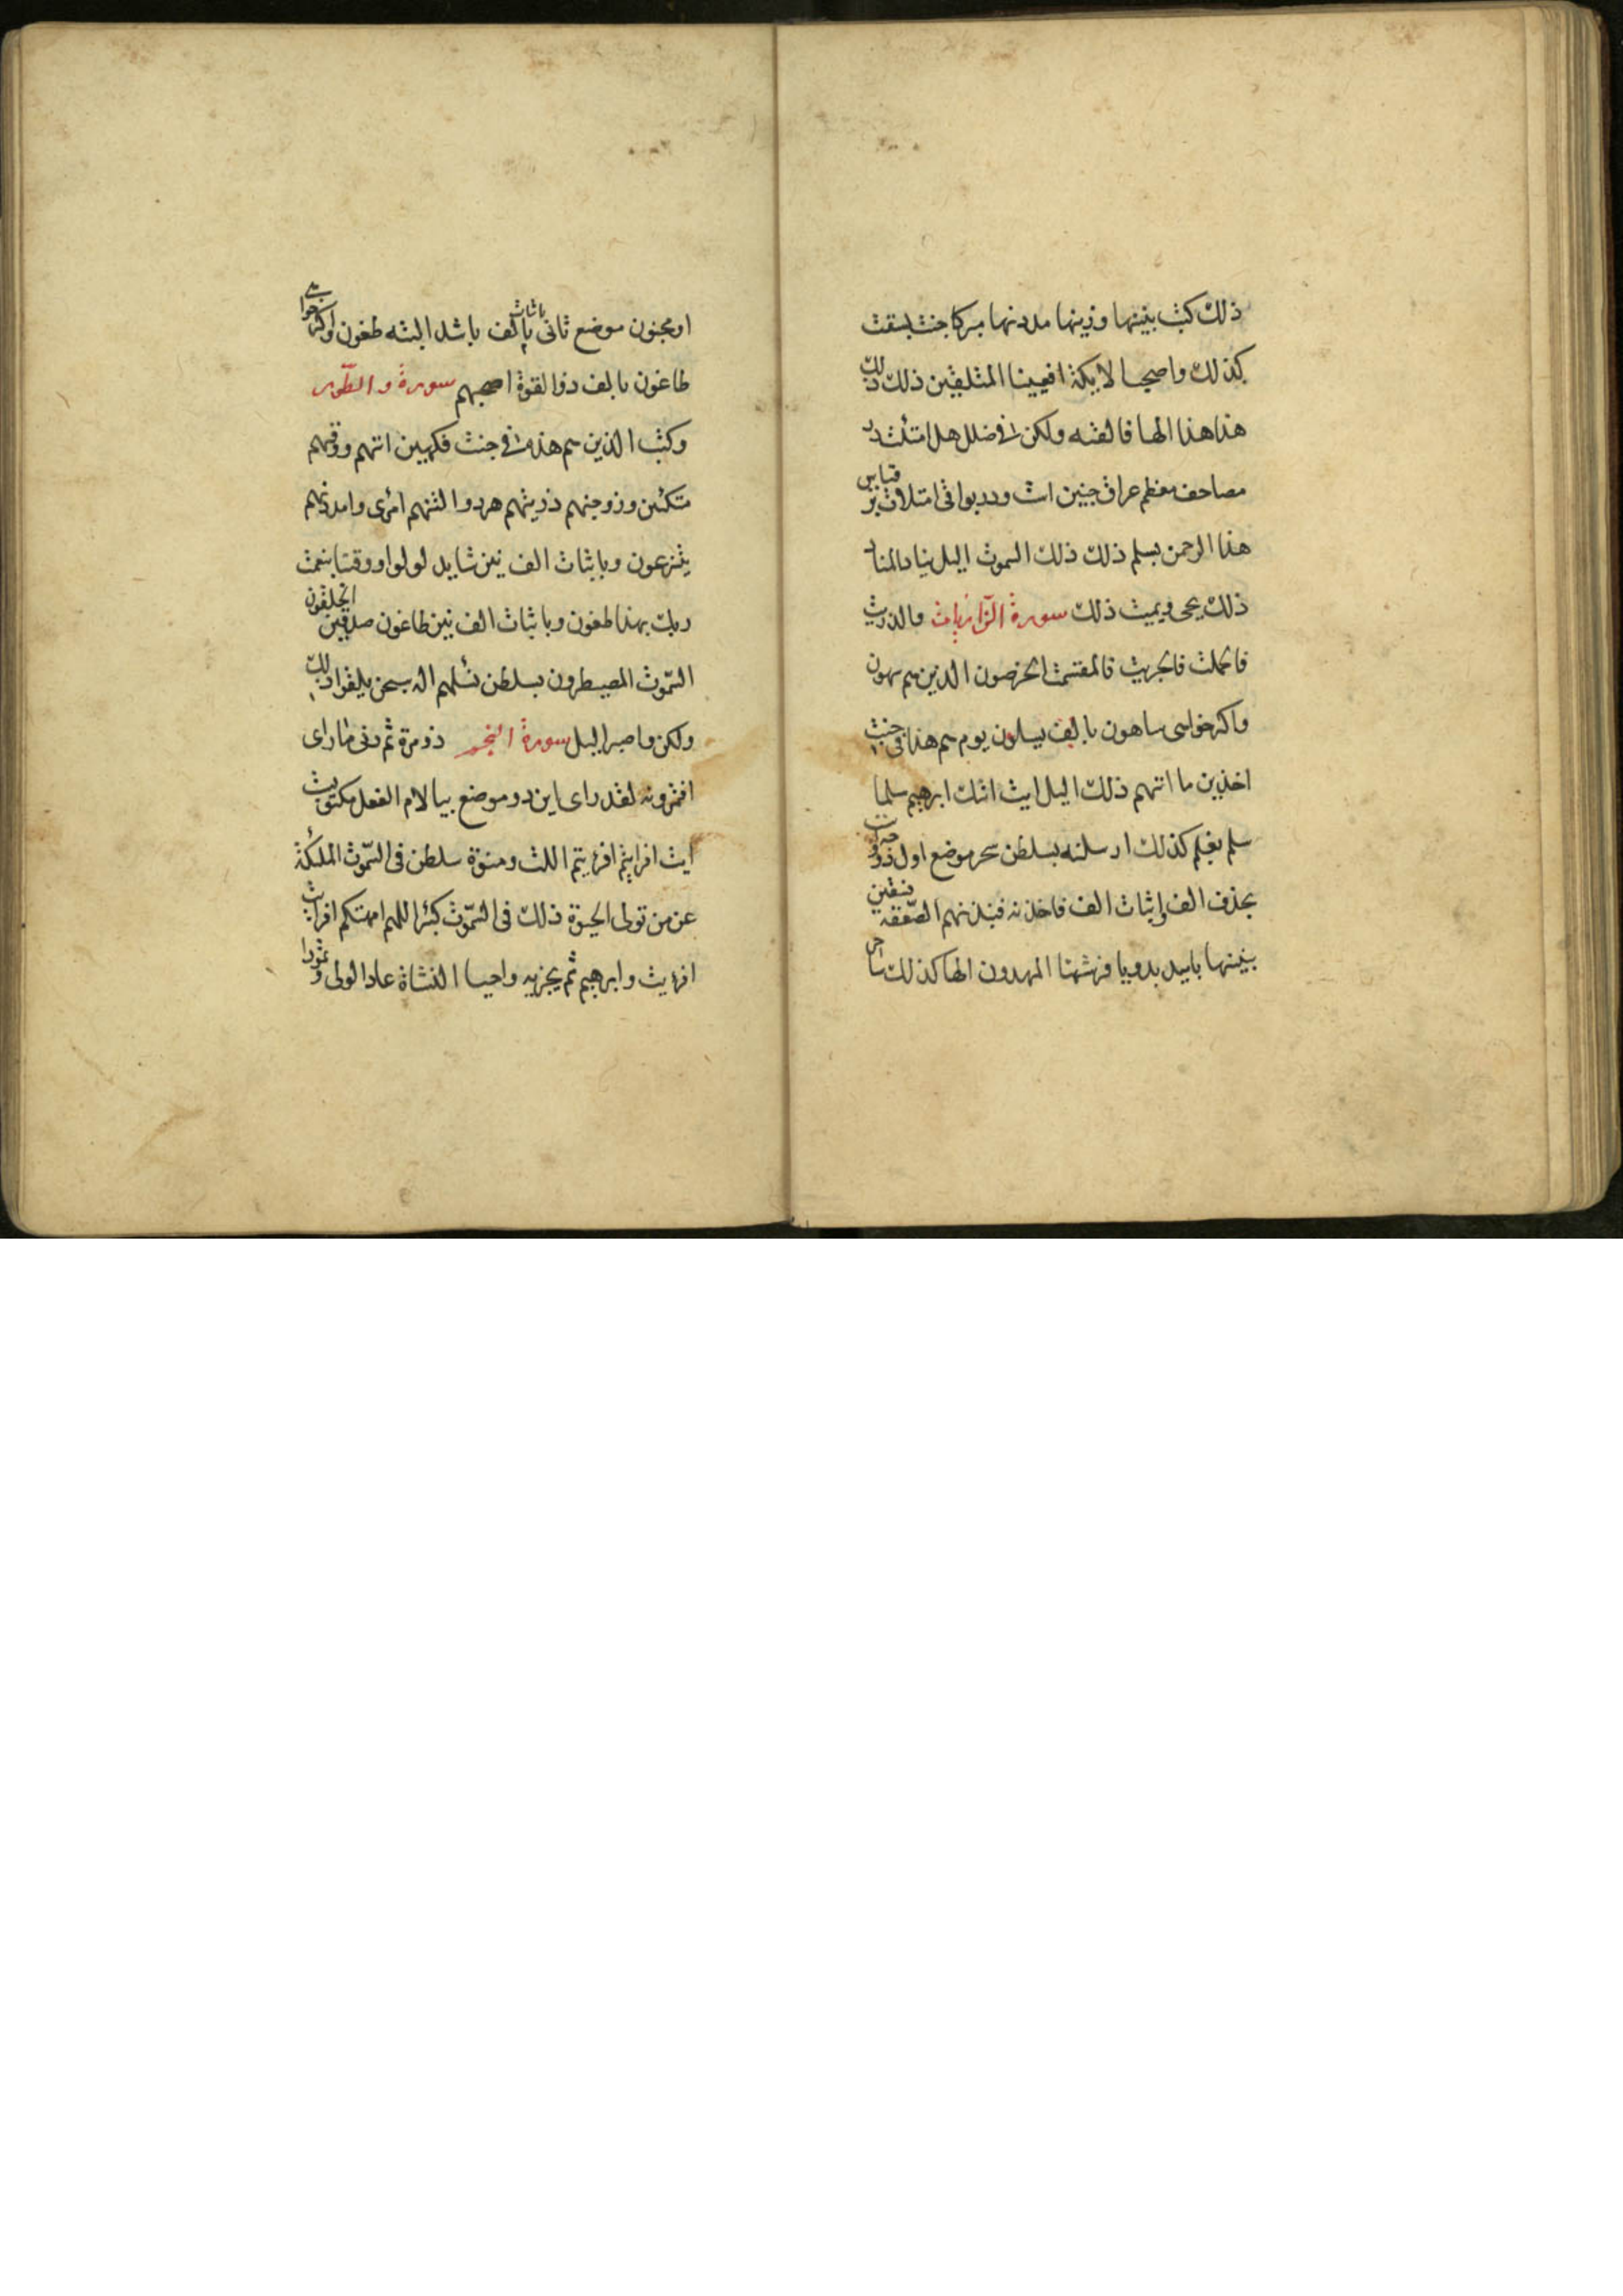 ذلك كتب بنينها وزينها مددنها مبركا جنت بسقت
كذلك واصحب الايكة افعيينا المتلقين ذلك ذلك
هذا هذا الها فالقنه ولكن فى ضلل هل امتلئت در
مصاحف معظم عراق جنين است ودر بواقى امتلات بر قياس
هذا الرحمن بسلم ذلك ذلك السموت اليل يناد المناد
ذلك يحى ويميت ذلك سورة الذاريات والذريت
فالحملت فالجريت فالمقسمت الخرصون الذين هم سهون
واكثر خواسى ساهون بالف يسلون يوم هم هذا فى جنت
اخذين ما اتهم ذلك اليل ايت اتك ابرهيم سلما
سلم بغلم كذلك ارسلنه بسلطن سحر موضع اول
بحذف الف واثبات الف فاخذنه فنبذنهم الصعقه فسقين
بنينها باييد بدو يا فرشنها المهدون الها كذلك ساحر
او مجنون موضع ثانى باثبات الف باشد البته طغون واكثر
طاغون بالف ذوا لقوة اصحبهم سورة والطور
وكتب الذين هم هذه فى جنت فكهين اتهم ووقهم
متكئين وزوجنهم ذريتهم هر دو التنهم امرى وامددنهم
يتنزعون وباثبات الف نيز شايد لولوا ووقنا بنعمت
ربك بهذا طغون وباثبات الف نيز طاغون صدقين الخلقون
السموت المصيطرون بسلطن تسلهم اله سبحن يلقوا ذلك
ولكن واصبر اليل سورة النجم ذو مرة ثم دنى ما راى
افتمرونه لقد راى اين دو موضع بيا لام الفعل مكتوبست
ايت افرايتم افرءيتم اللت ومنوة سلطن فى السموت الملئكة
عن من تولى الحيوة ذلك فى السموت كبئر اللهم امهتكم افرايت
افرءيت وابرهيم ثم يجزيه واحيا النشاة عادا الولى وثمودا